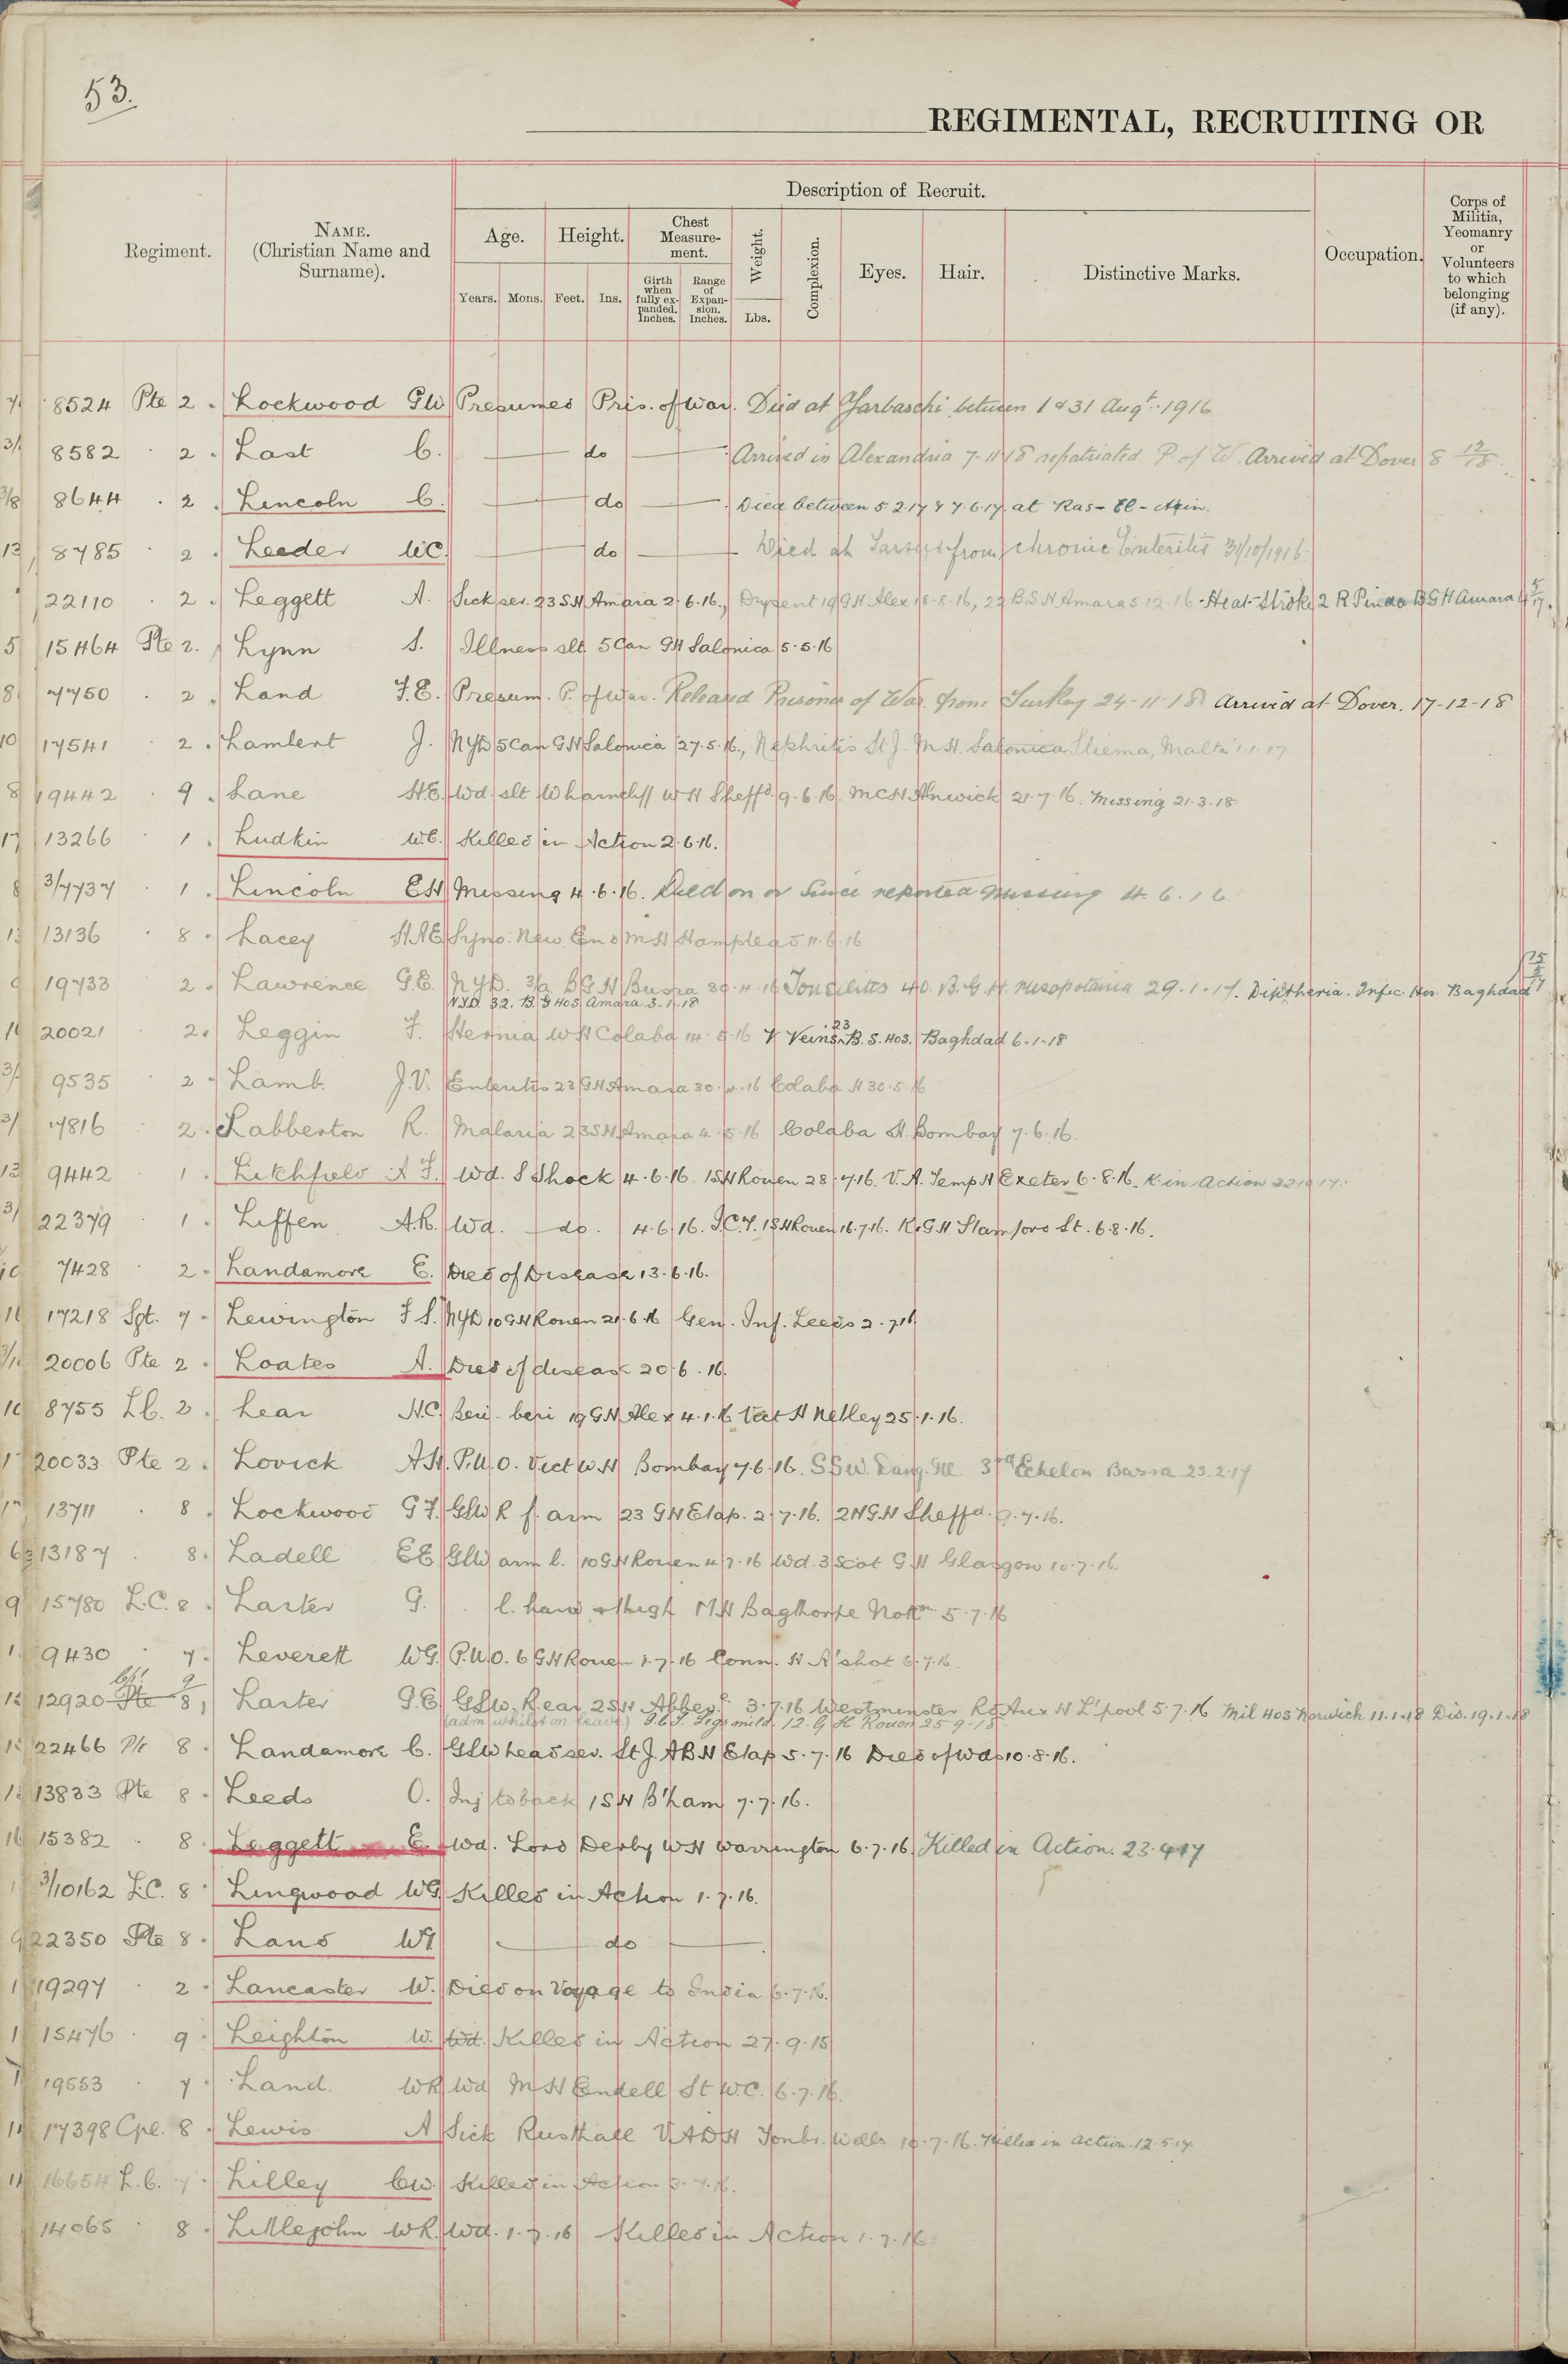 53.
REGIMENTAL, RECRUITING OR
Description of Recruit.
Regiment.
NAME.
(Christian Name and
Surname).
Age.
Height.
Chest
Measure-
ment.
Weight.
Complexion.
Eyes.
Hair.
Distinctive Marks.
Occupation.
Corps of
Militia,
Yeomanry
or
Volunteers
to which
belonging
(if any).
Years.
Mons.
Feet.
Ins.
Girth
when
fully ex-
panded.
Inches.
Range
of
Expan-
sion.
Inches.
Lbs.
8524 Pte 2 . Lockwood GW Presumed Pris. of War. Died at Yarbaschi between 1 & 31 Augt. 1916
8582 . 2 . Last C. do Arrived in Alexandria 7-11-18 repatriated P. of W. Arrived at Dover 8 12/18.
8644 . 2 . Lincoln C. do Died between 5.2.17 & 7.6.17. at Ras-El-Ain.
8785 . 2 . Leeder WC. do Died at Tarsus from chronic Enteritis 31/10/1916.
22110 . 2 . Leggett A. Sick ser. 23 S H Amara 2.6.16., Dysent 19 G H Alex 18.8.16, 22 B.S H Amara 5.12.16 Heat-Stroke 2 R Pindo B G H Amara
15464 Pte 2. Lynn S. Illness slt 5 Can G H Salonica 5.5.16
7750 . 2 . Land F.E. Presum. P. of War. Released Prisoner of War from Turkey 24-11-18 Arrived at Dover. 17-12-18
17541 . 2 . Lambert J. NYD 5 Can G H Salonica 27.5.16., Nephritis St J. M H. Salonica Sliema, Malta 1.1.17
19442 . 9 . Lane H.E. Wd. slt Wharncliff W H Sheffd 9.6.16. MCH Alnwick 21.7.16. Missing 21.3.18.
13266 . 1 . Ludkin W.C. Killed in Action 2.6.16.
3/7737 . 1 . Lincoln EH Missing 4.6.16. Died on or Since reported missing 4.6.16.
13136 . 8 . Lacey HAE Syno. New End M H Hampstead 11.6.16
19733 2 . Lawrence G.E. NYD. 3/a B G H Busra 30.4.16 Tonsilitis 40. B.G.H. Mesopotamia 29.1.17. Diphtheria. Infec. Hos. Baghdad
N.Y.D. 32. B. G Hos Amara 3.1.18
20021 2 . Leggin F. Hernia W H Colaba 14.5.16 V Veins 23 B.S. Hos. Baghdad 6-1-18
9535 . 2 . Lamb. J.V. Enteritis 23 G H Amara 30.4.16 Colaba H 30.5.16
7816 2 . Labberton R. Malaria 23 S H Amara 4.5.16 Colaba H. Bombay 7.6.16.
9442 1 . Litchfield A F. Wd. S Shock 4.6.16. 1 S H Rouen 28.7.16. V.A. Temp H Exeter 6.8.16. K in Action
22379 . 1 . Liffen A.R. Wd. do. 4.6.16. I.C.T. 1 S H Rouen 16.7.16. K.G H Stamford St. 6.8.16.
7428 . 2 . Landamore E. Died of Disease 13.6.16.
17218 Sgt. 7 . Lewington F S. NYD 10 G H Rouen 21.6.16 Gen. Inf. Leeds 2.7.16
20006 Pte 2 . Loates A. Died of disease 20.6.16.
8755 L C. 2 . Lear H.C. Beri-beri 19 G H Alex 4.1.16 Vict H Netley 25.1.16.
20033 Pte 2 . Lovick A H. P.U.O. Vict W H Bombay 7.6.16. S S W. Dang. Ill. 3rd Echelon Basra 23.2.17
13711 . 8 . Lockwood G F. GSW R f. arm 23 G H Etap. 2.7.16. 2 N G H Sheffd. 9.7.16.
13187 . 8 . Ladell EE GSW arm l. 10 G H Rouen 4.7.16 Wd. 3 Scot G H Glasgow 10.7.16.
15780 L.C. 8 . Larter G. l. hand & thigh M H Bagthorpe Nottm 5.7.16
9430 . 7 . Leverett WG. P.U.O. 6 G H Rouen 1.7.16 Conn. H A'shot 6.7.16.
Cpl 9
12920 Pte 8 . Larter G.E. GSW. Rear 2 S H Abbev. 3.7.16 Westminster Rd Aux H L'pool 5.7.16 Mil Hos Norwich 11.1.18 Dis. 19.1.18
(adm whilst on leave) I.C.T. Legs mild. 12. G H Rouen 25.9.18
22466 Pte 8 . Landamore C. GSW head sev. St J. A B H Etap 5.7.16 Died of Wds 10.8.16.
13833 Pte 8 . Leeds O. Inj to back 1 S H B'ham 7.7.16.
15382 . 8 . Leggett E. Wd. Lord Derby W H Warrington 6.7.16. Killed in Action. 23.4.17
3/10162 L.C. 8 . Lingwood WG. Killed in Action 1.7.16.
22350 Pte 8 . Land WG do
19297 . 2 . Lancaster W. Died on Voyage to India 6.7.16.
15476 . 9 . Leighton W. Wd. Killed in Action 27.9.15
19553 . 7 . Land. WR Wd M H Endell St W.C. 6.7.16.
17398 Cpl. 8 . Lewis A Sick Rusthall VADH Tonbr. Wells 10.7.16. Killed in action. 12.5.17
16654 L.C. 7 . Lilley CW. Killed in Action
14065 . 8 . Littlejohn WR. Wd. 1.7.16 Killed in Action 1.7.16